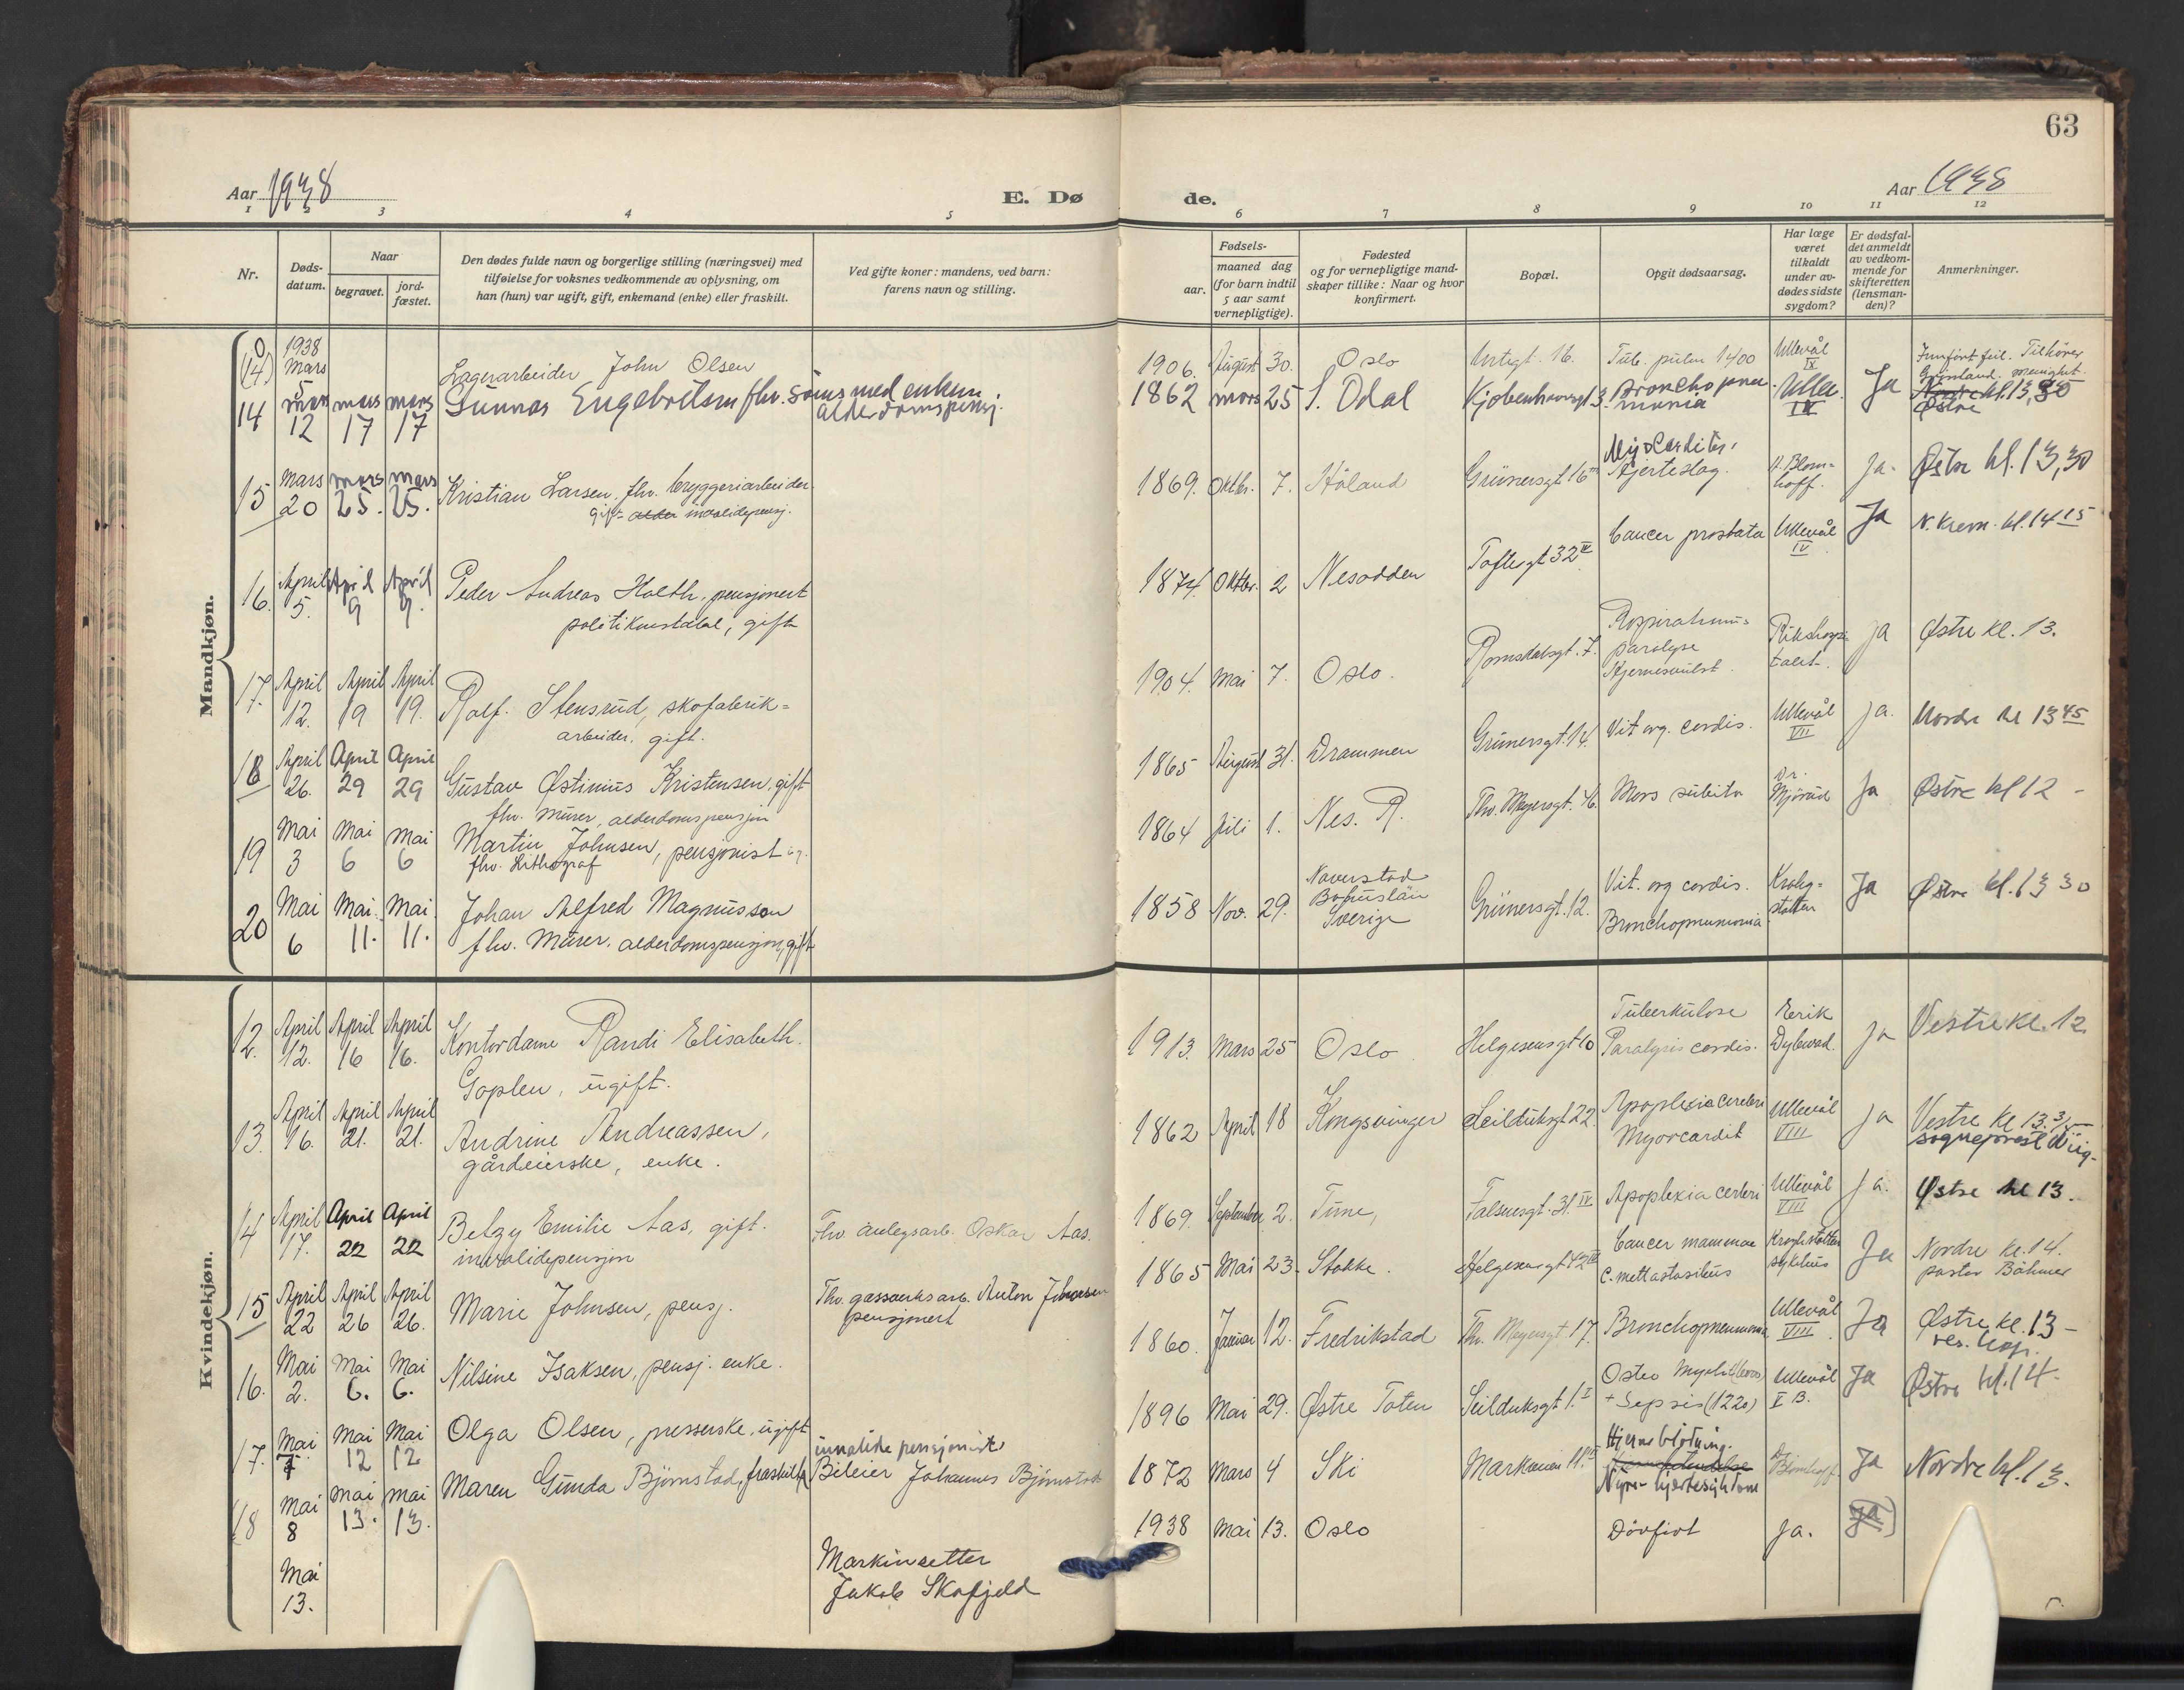 63
Aar 1938
E. Dø
de.
Aar 1938
1 2 3 4 5 6 7 8 9 10 11 12
Nr.
Døds-
datum.
Naar
begravet.
jord-
fæstet.
Den dødes fulde navn og borgerlige stilling (næringsvei) med
tilføielse for voksnes vedkommende av oplysning, om
han (hun) var ugift, gift, enkemand (enke) eller fraskilt.
Ved gifte koner: mandens, ved barn:
farens navn og stilling.
Fødsels-
aar.
maaned dag
(for barn indtil
5 aar samt
vernepligtige).
Fødested
og for vernepligtige mand-
skaper tillike: Naar og hvor
konfirmert.
Bopæl.
Opgit dødsaarsag.
Har læge
været
tilkaldt
under av-
dødes sidste
sygdom?
Er dødsfal-
det anmeldt
av vedkom-
mende for
skifteretten
(lensman-
den)?
Anmerkninger.
Mandkjøn.
0
(14) 1938 Mars 5 Lagerarbeider John Olsen 1906. August 30. Oslo Urtegt. 16. Tub. pulm 1400 Ullevål IX Innført feil. Tilhører
Grønland menight.
14 mars 12 mars 17 mars 17 Gunnar Engebretsen fhv. sømsmed enkem. 1862 mars 25 S. Odal Kjøbenhavngt 3. Bronchopneu- Ullev. IX Ja kl. 13,30
alderdomspensj. monia Østre
15 Mars 20 mars 25. mars 25. Kristian Larsen, fhv. bryggeriarbeider. 1869. Oktbr. 7. Høland Grünersgt 16 Myocarditis, Hjerteslag. Blom-
hoff. ja. Østre kl. 13,30
gift alder invalidepensj.
16. April 5. April 9 April 9. Peder Andreas Holth, pensjonert 1874. Oktbr. 2 Nesodden Toftesgt 32 IV Cancer prostata Ullevål IV Ja N. Krem. kl. 14 15
politikonstabel, gift
17. April 12. April 19 April 19. Rolf Stensrud, skofabrik- 1904. Mai 7. Oslo. Romsdalsgt. 7. Respirations-
paralyse
Hjernesvulst. Rikshospi-
talet. ja Østre kl. 13.
arbeider, gift.
18 April 26. April 29 April 29 Gustav Østinius Kristensen, gift 1865 August 31. Drammen Grünersgt. 14. Vit. org. cordis. Ullevål VII ja. Nordre kl 13 45
fhv. murer, alderdomspensjon
19 Mai 3 Mai 6 Mai 6 Martin Johnsen, pensjonist 1864 Juli 1. Nes. R. Thv. Meyersgt. 46. Mors subita Dr. Mjörud Ja Østre kl 12 -
fhv. Lithograf
20 Mai 6 Mai. 11. Mai. 11. Johan Alfred Magnusson 1858 Nov. 29. Naverstad
Bohuslän
Sverige Grünersgt. 12. Vit. org cordis.
Bronchopneumonia Krohg-
støtten Ja Østre kl. 13 30
fhv. murer. alderdomspensjon, gift
Kvindekjøn.
12. April 12. April 16 April 16. Kontordame Randi Elisabeth 1913. Mars 25 Oslo Helgesensgt 10 Tuberkulose
Paralysis cordis. Eerik
Dybwad. ja Vestre kl. 12.
Goplen, ugift.
13. April 16. April 21. April 21. Andrine Andreassen, 1862 April 18 Kongsvinger Seilduksgt 22. Apoplexia cerebri
Myocardit Ullevål VIII ja Vestre kl 13.
sogneprest Wiig.
gårdeierske, enke.
14 April 17. April 22 April 22 Betzy Emilie Aas, gift. Fhv. anlegsarb. Oskar Aas. 1869. September 2. Tune, Falsensgt. 31. IV Apoplexia cerebri Ullevål VIII ja. Østre kl 13.
invalidepensjon
15 April 22 April 26 April 26. Marie Johnsen, pensj. Fhv. gassverksarb. Anton Johnsen
pensjonert 1865 Mai 23. Stokke. Helgesensgt 42 Cancer mammae
c. mettastasibus Kroghstøtten
sykehus Ja Nordre kl. 14.
pastor Böhmer
16. Mai 2. Mai 6. Mai 6. Nilsine Isaksen, pensj. enke. 1860. Januar 12. Fredrikstad Thv. Meyersgt 17. Bronchopneumonia Ullevål VIII Ja Østre kl. 13 -
res. kap.
17. Mai 7 Mai 12 Mai 12 Olga Olsen, presserske, ugift 1896 Mai 29. Østre Toten Seilduksgt 1. I Osteo Myelit
+ Sepsis (1220) Ullevål X B. Ja Østre kl. 14.
18 Mai 8 mai 13. mai 13. Maren Gunda Bjørnstad, fraskilt invalide pensjonist
Bileier Johannes Bjørnstad 1872 Mars 4 Ski Markveien 11. Hjerneblødning.
Nyre- hjertesykdom Dr. Blomhoff Ja Nordre kl. 13.
Mai 13. Maskinsetter
Jakob Skofjeld 1938 Mai 13. Oslo Dødfødt ja. ja